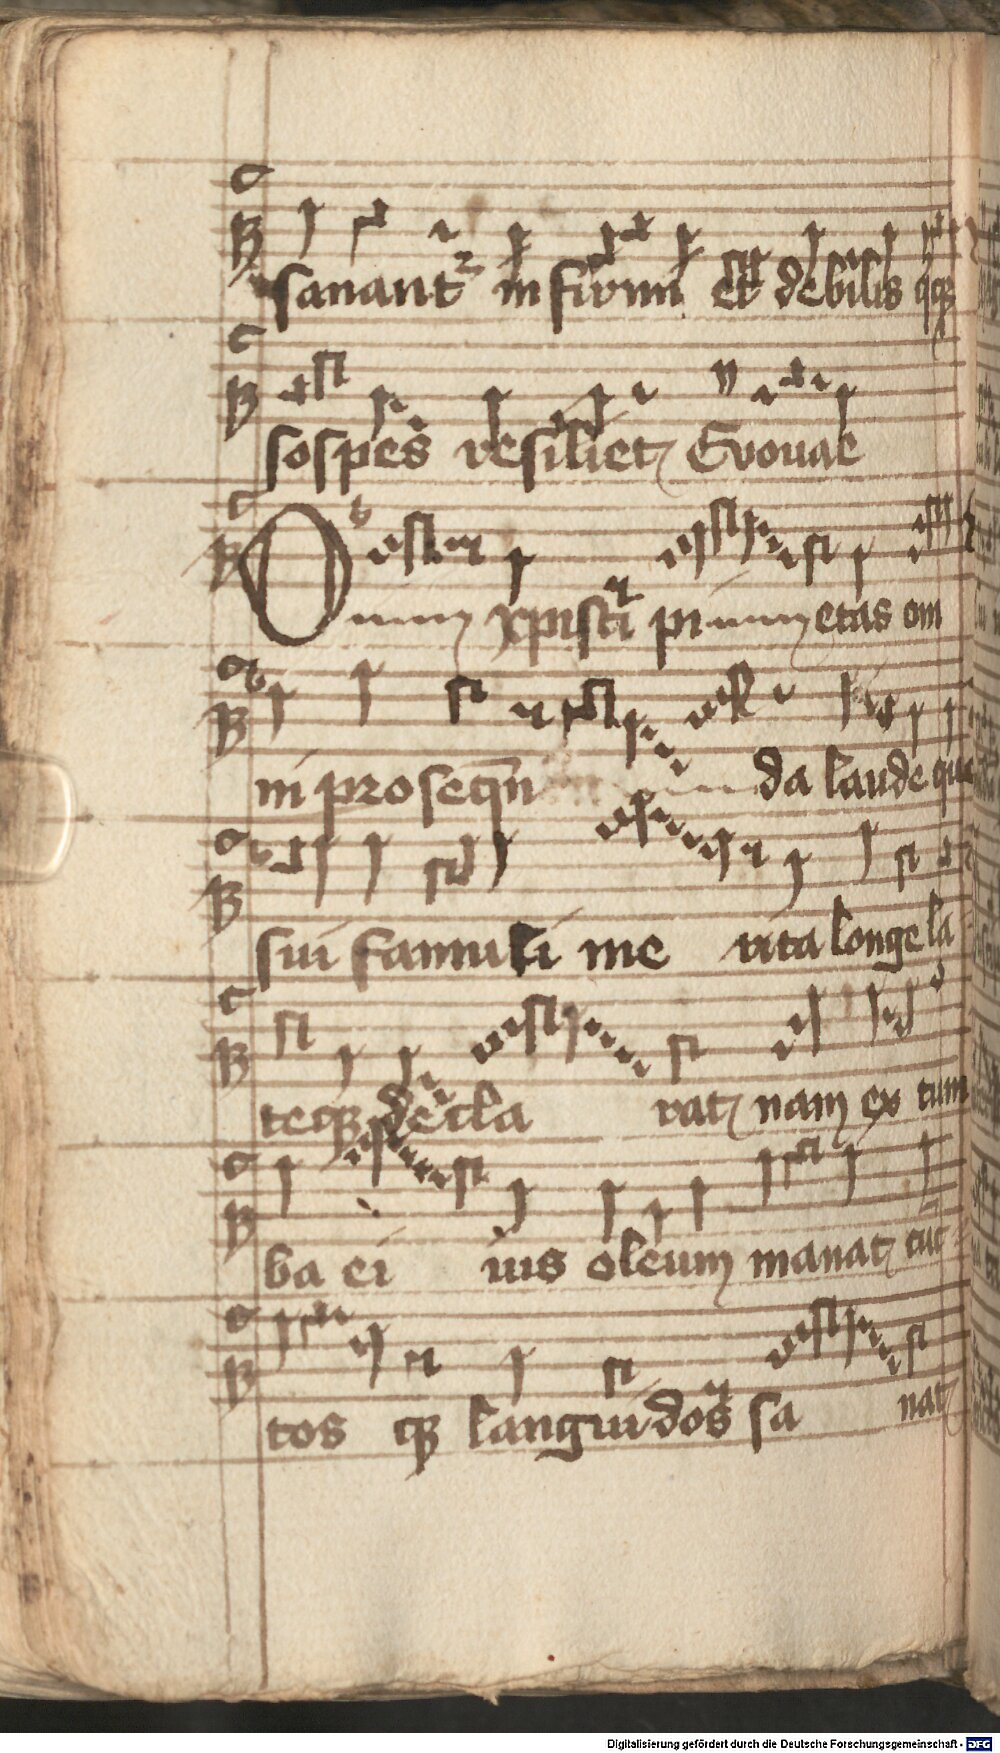 sanant᷑ infirmi et debilis q̄q̷
sospes resiliet Evovae
Omnipm xp̄isti pi mm etas om
ni prosequn da laude qua
sui famuli me rita longe la
teq̷ decla rat nam ex tum
ba ei ius oleum manat cuc
tos q̷ languidos sa nat
Digitalisierung gefördert durch die Deutsche Forschungsgemeinschaft - DFG